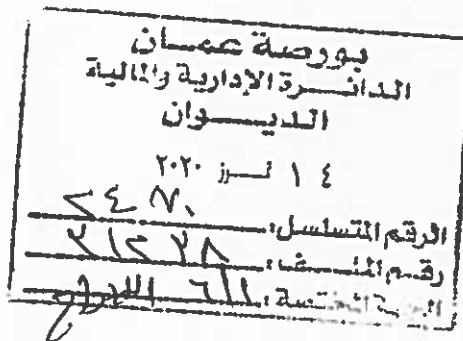 بورصة عمان
الدائرة الإدارية والمالية
الديوان
١٤ تموز ٢٠٢٠
الرقم المتسلسل: ٢٤٧٠
رقم الملف: ٣١٢٣٨
الجهة المختصة: